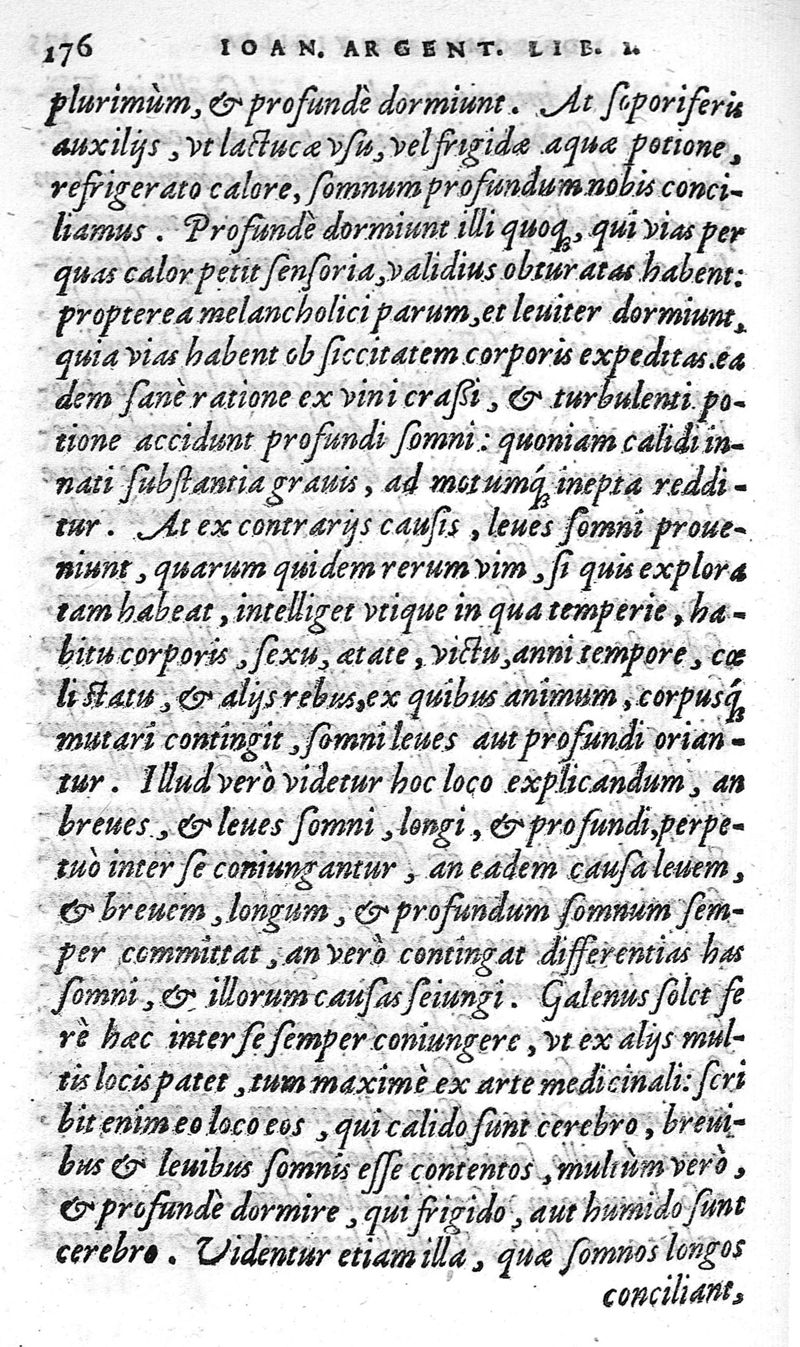 176 IOAN. ARGENT. LIB. I.
plurimùm, & profundè dormiunt. At soporiferis
auxilijs, vt lactucæ vsu, vel frigidæ aquæ potione,
refrigerato calore, somnum profundum nobis conci-
liamus. Profundè dormiunt illi quoq;, qui vias per
quas calor petit sensoria, validius obturatas habent:
propterea melancholici parum, et leuiter dormiunt,
quia vias habent ob siccitatem corporis expeditas. ea
dem sanè ratione ex vini crassi, & turbulenti po-
tione accidunt profundi somni: quoniam calidi in-
nati substantia grauis, ad motumq́; inepta reddi-
tur. At ex contrarijs causis, leues somni proue-
niunt, quarum quidem rerum vim, si quis explora
tam habeat, intelliget vtique in qua temperie, ha-
bitu corporis, sexu, ætate, victu, anni tempore, cœ
li statu, & alijs rebus, ex quibus animum, corpusq́;
mutari contingit, somni leues aut profundi orian-
tur. Illud verò videtur hoc loco explicandum, an
breues, & leues somni, longi, & profundi, perpe-
tuò inter se coniungantur, an eadem causa leuem,
& breuem, longum, & profundum somnum sem-
per committat, an verò contingat differentias has
somni, & illorum causas seiungi. Galenus solet fe
rè hæc inter se semper coniungere, vt ex alijs mul-
tis locis patet, tum maximè ex arte medicinali: scri
bit enim eo loco eos, qui calido sunt cerebro, breui-
bus & leuibus somnis esse contentos, multùm verò,
& profundè dormire, qui frigido, aut humido sunt
cerebro. Videntur etiam illa, quæ somnos longos
conciliant,